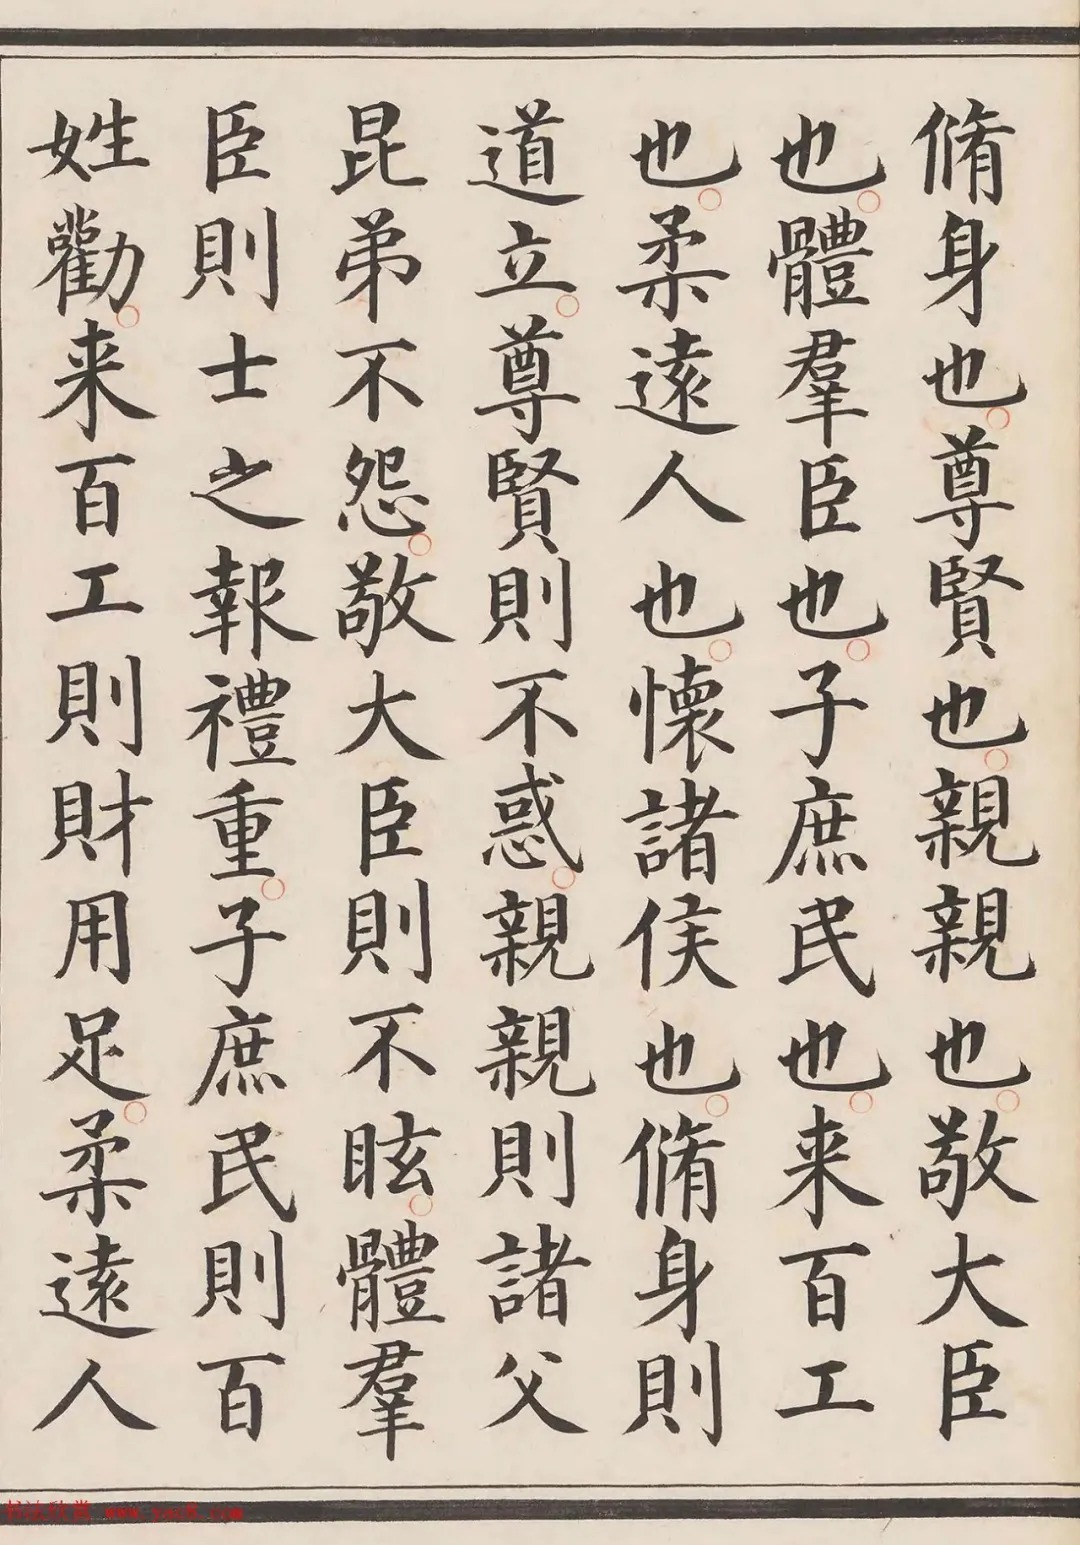 脩身也。尊賢也。親親也。敬大臣
也。體羣臣也。子庶民也。来百工
也。柔遠人也。懷諸侯也。脩身則
道立。尊賢則不惑。親親則諸父
昆弟不怨。敬大臣則不眩。體羣
臣則士之報禮重。子庶民則百
姓勸。来百工則財用足。柔遠人
书法欣赏 www.yac8.com